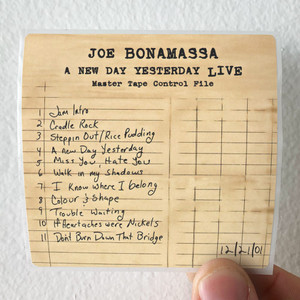 JOE BONAMASSA
A NEW DAY YESTERDAY LIVE
Master Tape Control File
1 Jam Intro
2 Cradle Rock
3 Steppin Out/Rice Pudding
4 A New Day Yesterday
5 Miss You, Hate You
6 Walk in my Shadows
7 I Know Where I belong
8 Colour & Shape
9 Trouble Waiting
10 If Heartaches were Nickels
11 Don't Burn Down That Bridge
12/21/01